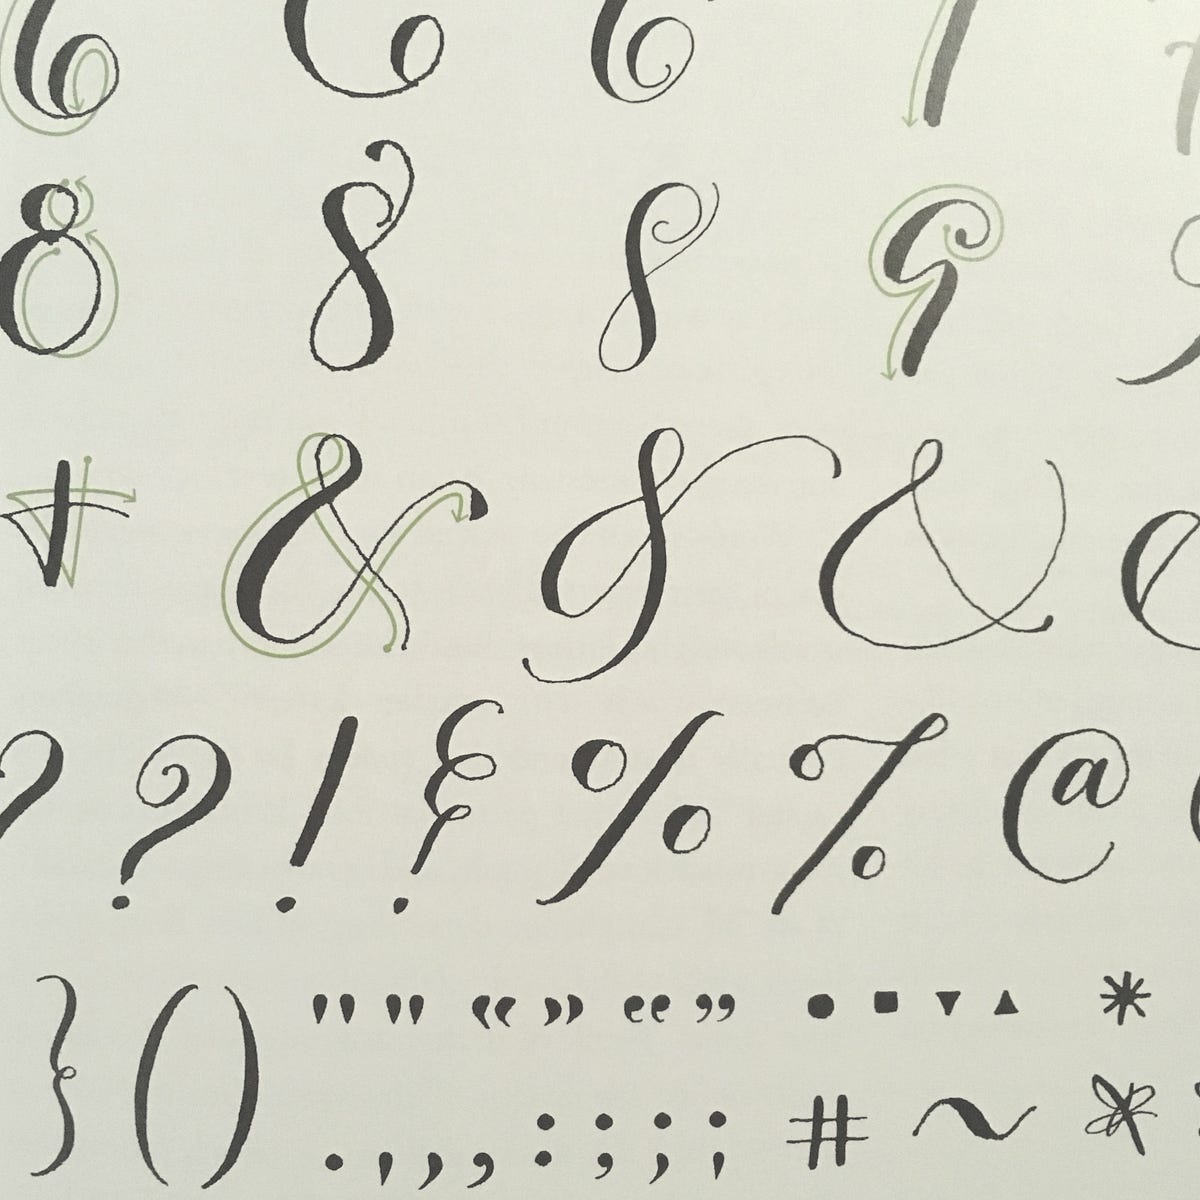 6 6 6 7
8 8 8 9
& & &
? ? ! ! % % @
} ( ) " " « » “ ” ● ■ ▼ ▲ *
. , , , : ; ; ; # ~ *